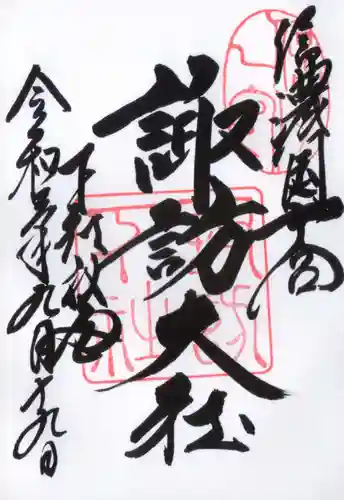 信濃國一宮
諏訪大社
下社秋宮
令和元年九月十九日